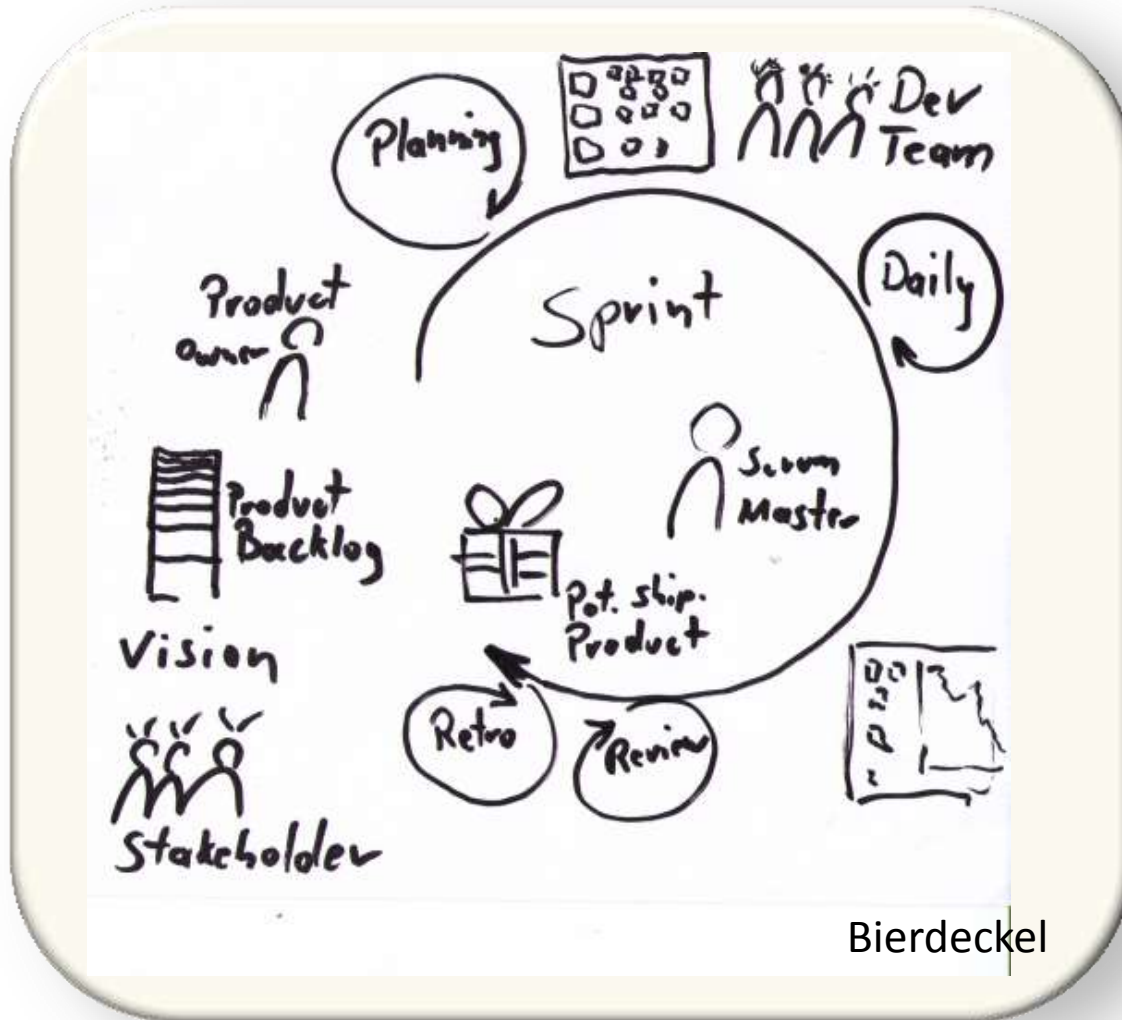 Planning
Dev
Team
Daily
Sprint
Product
Owner
Scrum
Master
Product
Backlog
Pot. ship.
Product
Vision
Retro
Review
Stakeholder
Bierdeckel